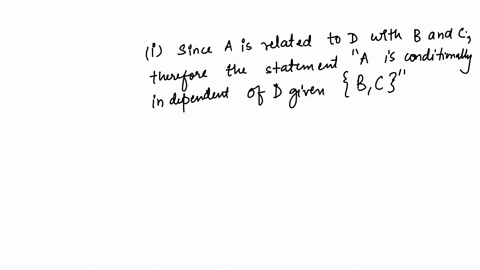 (i) Since A is related to D with B and C,
therefore the statement "A is conditionally
independent of D given {B,C}"